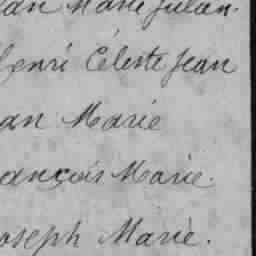 an Marie Julian.
enri Céleste Jean
an Marie
ançois Marie.
oseph Marie.